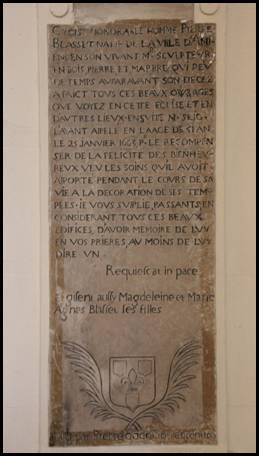 CY GIST HONORABLE HOMME
BLASSET NATIF DE LA VILE D'AMI
ENS EN SON VIVANT M. SCULPTEUR
EN BOIS PIERRE ET MARBRE QUI PEU
DE TEMPS AUPARAVANT SON DECEZ
A FAICT TOUS CES BEAUX OUVRAGES
QUE VOYEZ EN CETTE EGLISE ET EN
D'AUTRES LIEUX ENSUITE N. SEIG.
L'AYANT APELE EN L'AAGE DE 51 AN
LE 25 JANVIER 1663 P. LE RECOMPEN
SER DE LA FELICITE DES BIENHEU
REUX VEU LES SOINS QU'IL AVOIT
APORTE PENDANT LE COURS DE SA
VIE A LA DECORATION DE SES TEM
PLES. JE VOUS SUPLIE PASSANTS EN
CONSIDERANT TOUS CES BEAUX
EDIFICES, D'AVOIR MEMOIRE DE LUY
EN VOS PRIERES, AU MOINS DE LUY
DIRE UN
Requiescat in pace
Et gisent aussy Magdeleine et Marie
Agnes Blasset ses filles